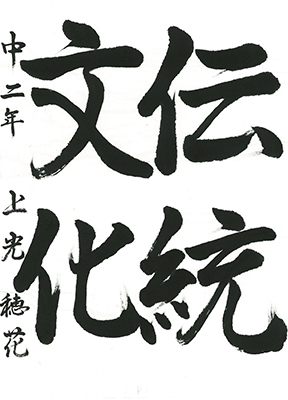 伝統
文化
中二年 上光穂花